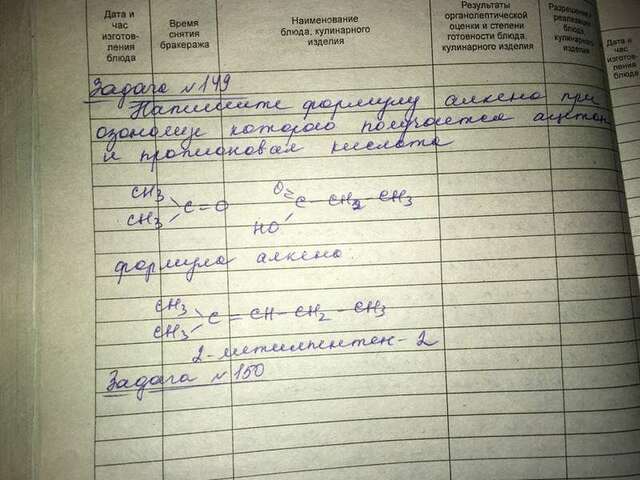 Дата и
час
изготов-
ления
блюда
Время
снятия
бракеража
Наименование
блюда, кулинарного
изделия
Результаты
органолептической
оценки и степени
готовности блюда,
кулинарного изделия
Разрешение к
реализации
блюда,
кулинарного
изделия
Дата и
час
изготов-
ления
блюда
Задача №149
Напишите формулу алкена при
озонолизе которого получается ацетон
и пропионовая кислота
CH3
CH3
C=O
O=
HO
C-CH2-CH3
формула алкена
CH3
CH3
C=CH-CH2-CH3
2-метилпентен-2
Задача №150